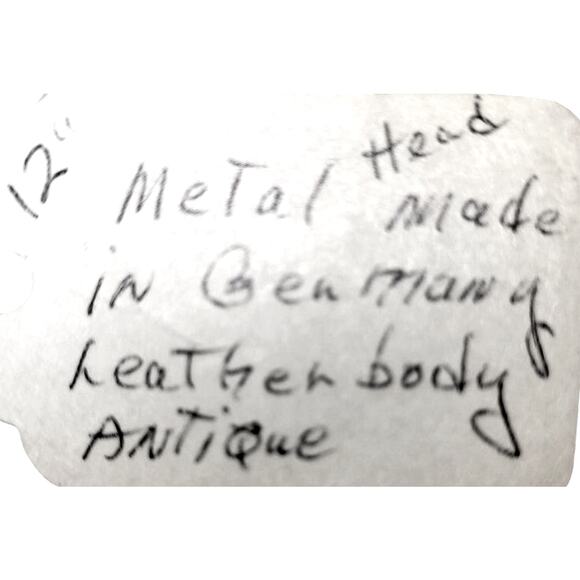 12" Metal Head made
in Germany
Leather body
ANTiQue